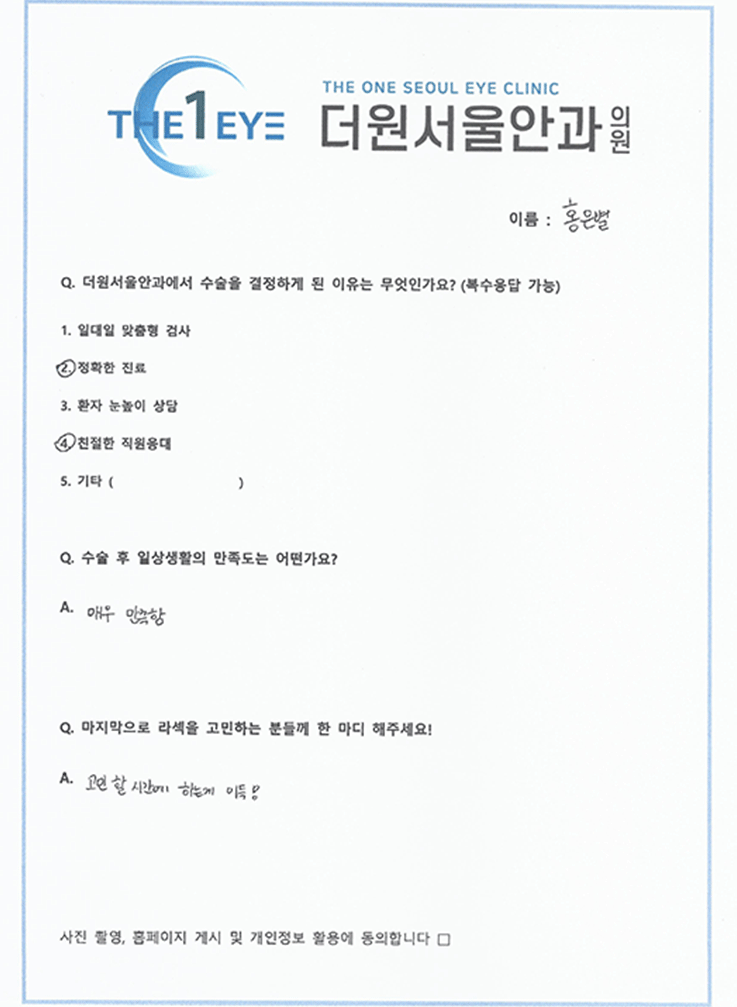 THE1EYE
THE ONE SEOUL EYE CLINIC
더원서울안과의원
이름 : 홍은별
Q. 더원서울안과에서 수술을 결정하게 된 이유는 무엇인가요? (복수응답 가능)
1. 일대일 맞춤형 검사
2. 정확한 진료
3. 환자 눈높이 상담
4. 친절한 직원응대
5. 기타 ( )
Q. 수술 후 일상생활의 만족도는 어떤가요?
A. 매우 만족함
Q. 마지막으로 라섹을 고민하는 분들께 한 마디 해주세요!
A. 고민 할 시간에 하는게 이득!
사진 촬영, 홈페이지 게시 및 개인정보 활용에 동의합니다 □